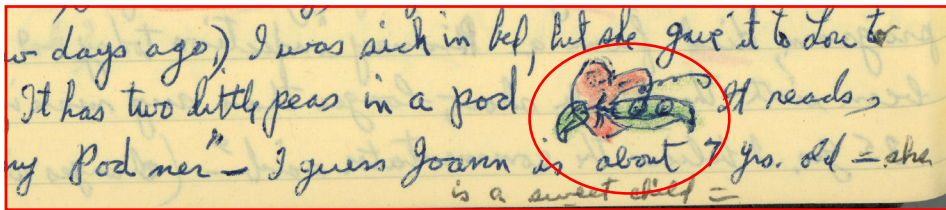 days ago,) I was sick in bed, but she gave it to Lou to
It has two little peas in a pod It reads,
my Pod ner" - I guess Joann is about 7 yrs. old = she
is a sweet child =